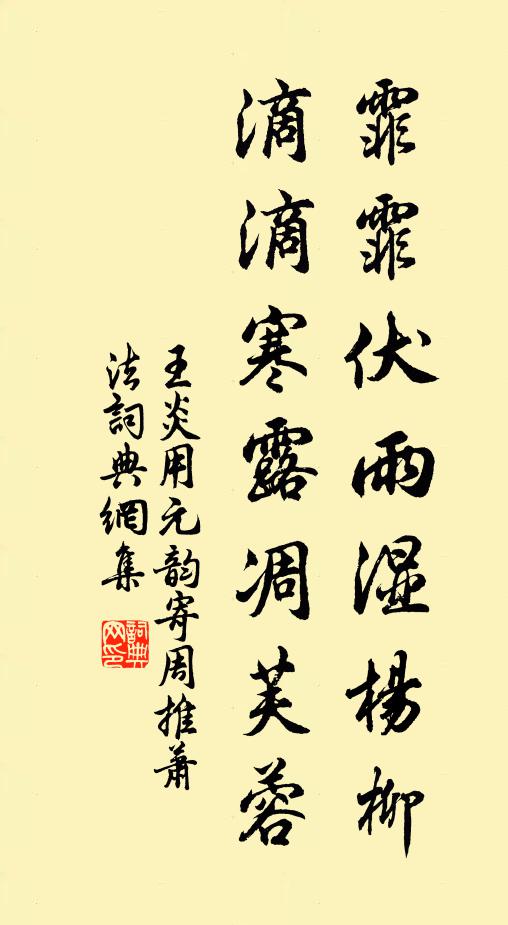 霏霏伏雨湿楊柳
滴滴寒露凋芙蓉
王炎用元韵寄周推萧
法詞典網集
詞典网印